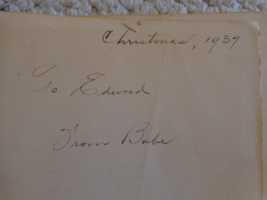 Christmas, 1937
To Edward
From Babe